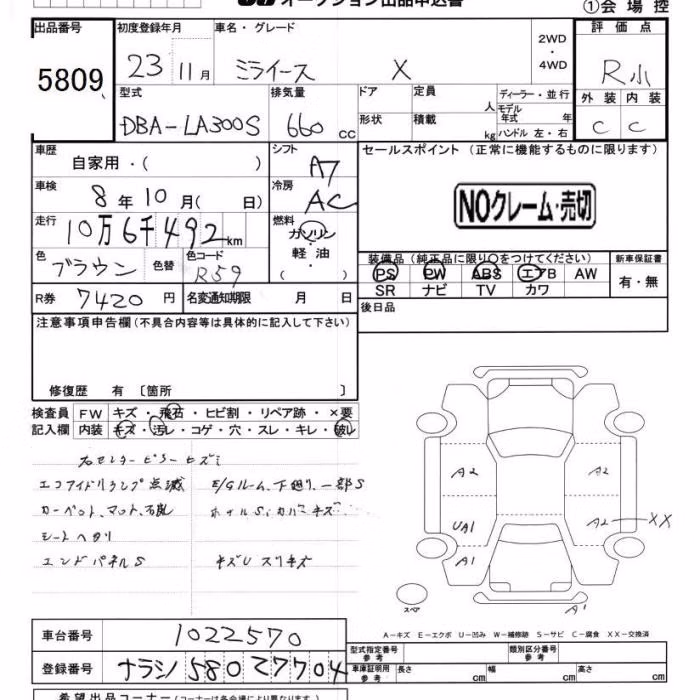 オークション出品申込書
①会場控
出品番号 5809
初度登録年月 23 11月
車名・グレード ミライース X
2WD・4WD
評価点 R小
外装 C 内装 C
型式 DBA-LA300S
排気量 660 cc
ドア 定員 人
形状 積載 kg
ディーラー・並行
モデル年式 年
ハンドル 左・右
車歴 自家用・( )
シフト A7
セールスポイント (正常に機能するものに限ります)
車検 8年10月( 日)
冷房 AC
NOクレーム・売切
走行 10万6千492km
燃料 ガソリン・軽油・( )
色 ブラウン 色替
色コード R59
装備品 (純正品に限り○をつけてください)
PS PW ABS エアB AW
SR ナビ TV カワ
新車保証書 有・無
R券 7420円
名変通知期限 月 日
後日品
注意事項申告欄(不具合内容等は具体的に記入して下さい)
修復歴 有 〔箇所 〕
検査員記入欄
FW キズ・飛石・ヒビ割・リペア跡・×要
内装 キズ・汚レ・コゲ・穴・スレ・キレ・破レ
右センターピラーヒズミ
エコアイドリランプ点滅 E/Gルーム、下廻り、一部S
カーペット、マット、
ホイルS、カバーキズ
シートヘタリ
エンドパネルS キズUスリキズ
A2 A2
UA1 A2 XX
A1
スペア A1
A-キズ E-エクボ U-凹み W-補修跡 S-サビ C-腐食 XX-交換済
車台番号 1022570
登録番号 ナラシノ 580 ス 7704
型式指定番号 参考
類別区分番号 参考
車庫証明用 参考 長さ cm 幅 cm 高さ cm
希望出品コーナー (コーナーは各会場により異なります)